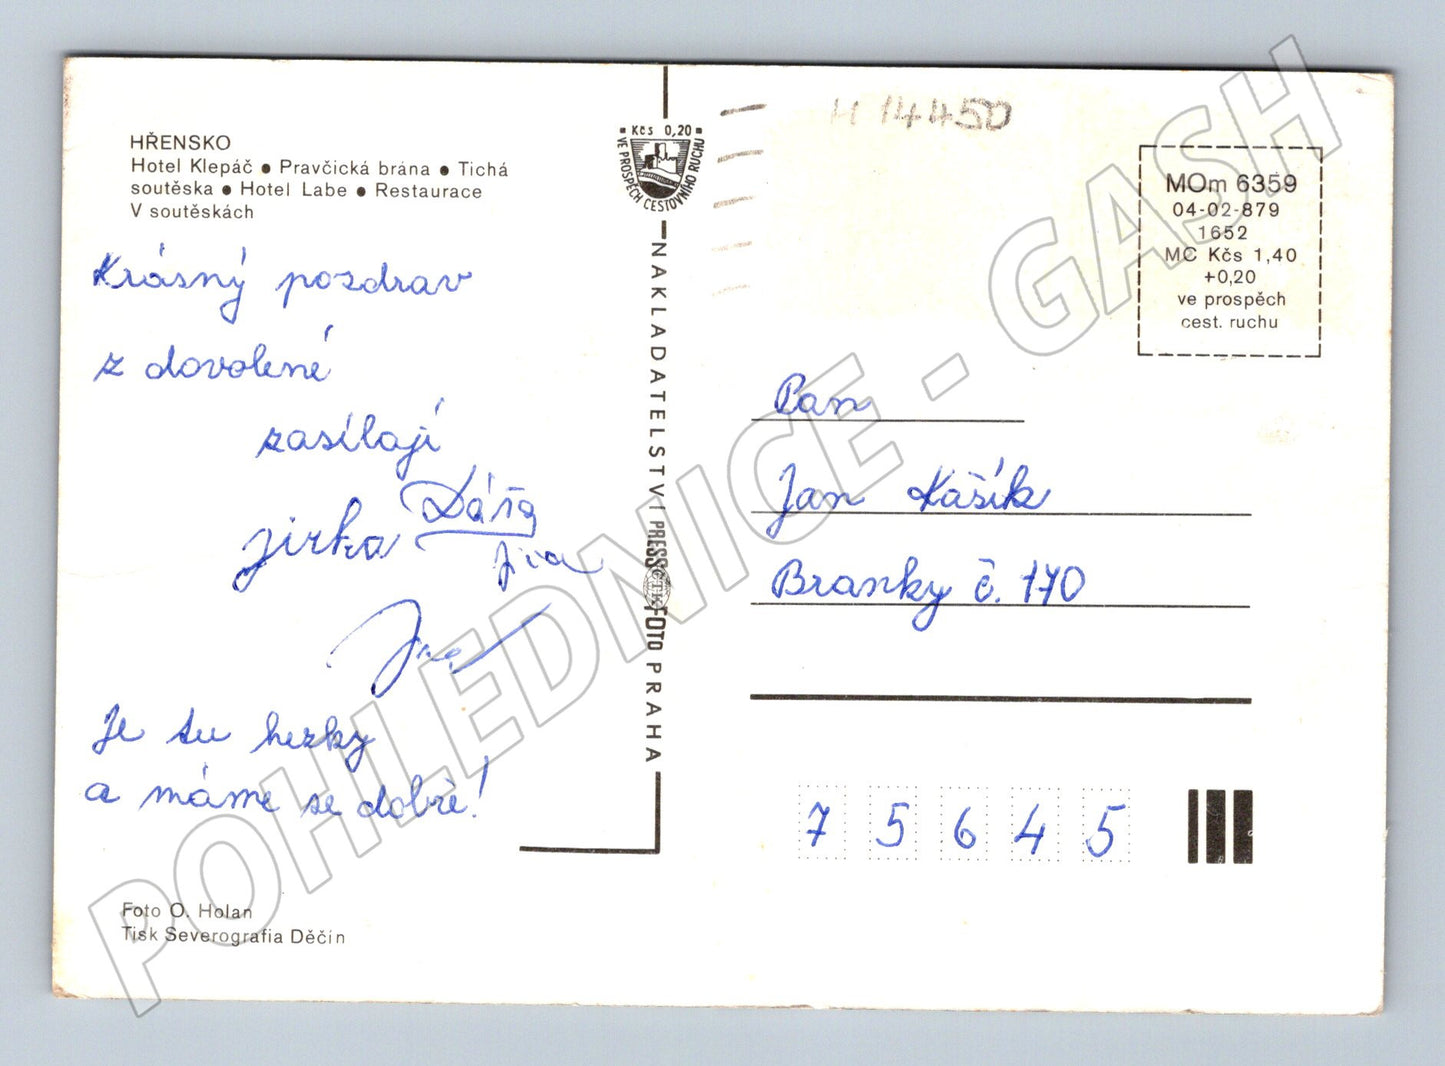 HŘENSKO
Hotel Klepáč • Pravčická brána • Tichá
soutěska • Hotel Labe • Restaurace
V soutěskách
Krásný pozdrav
z dovolené
zasílají
Jirka Dáša
Je tu hezky
a máme se dobře!
Foto O. Holan
Tisk Severografia Děčín
Kčs 0,20
VE PROSPĚCH CESTOVNÍHO RUCHU
NAKLADATELSTVÍ PRESSFOTO PRAHA
ČTK
H 14450
MOm 6359
04-02-879
1652
MC Kčs 1,40
+0,20
ve prospěch
cest. ruchu
Pan
Jan Kašík
Branky č. 170
7 5 6 4 5
POHLEDNICE - GASH